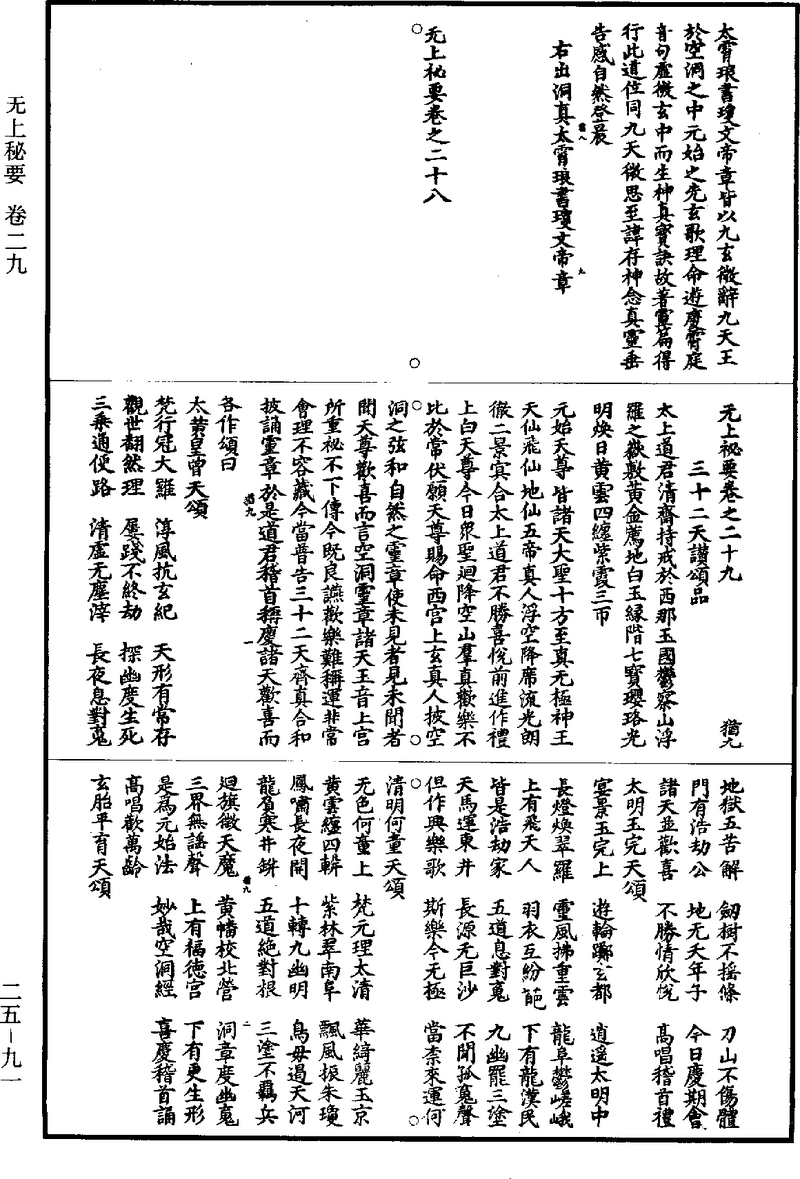 无上秘要 卷二九
二五－九一
太霄琅書瓊文帝章皆以九玄微辭九天王
於空洞之中元始之先玄歌理命遊慶霄庭
音句虛微玄中而生神真寶訣故著靈篇得
行此道位同九天微思至諱存神念真靈垂
告感自然登晨
右出洞真太霄琅書瓊文帝章
猶八
九
无上秘要卷之二十八
无上秘要卷之二十九
猶九
三十二天讚頌品
太上道君清齋持戒於西那玉國鬱察山浮
羅之嶽敷黃金薦地白玉緣階七寶瓔珞光
明煥日黃雲四纏紫霞三帀
元始天尊皆諸天大聖十方至真无極神王
天仙飛仙地仙五帝真人浮空降席流光朗
徹二景宾合太上道君不勝喜悅前進作禮
上白天尊今日衆聖迴降空山羣真歡樂不
比於常伏願天尊賜命西宫上玄真人披空
洞之弦和自然之靈章使未見者見未聞者
聞天尊歡喜而言空洞靈章諸天玉音上宮
所重祕不下傳今既良讌歡樂難稱運非常
會理不容藏今當普告三十二天齊真合和
披誦靈章於是道君稽首稱慶諸天歡喜而
猶九
一
各作頌曰
太黃皇曾天頌
梵行冠大羅 淳風抗玄紀 天形有常存
觀世翻然理 屢踐不終劫 探幽度生死
三乘通便路 清虛无塵滓 長夜息對䰟
地獄五苦解 劒樹不摇條 刀山不傷體
門有浩劫公 地无夭年子 今日慶期會
諸天並歡喜 不勝情欣悅 高唱稽首禮
太明玉完天頌
宴景玉完上 遊輪躑玄都 逍遥太明中
長燈煥翠羅 靈風拂重雲 龍阜鬱嵯峨
上有飛天人 羽衣互紛葩 下有龍漢民
皆是浩劫家 五道息對䰟 九幽罷三塗
天馬運東井 長源无巨沙 不聞孤䰟聲
但作興樂歌 斯樂今无極 當柰來運何
清明何童天頌
无色何童上 梵元理太清 華綺麗玉京
黃雲纏四軿 紫林翠南阜 飄風振朱瓊
鳳嘯長夜開 十轉九幽明 鳥毋過天河
龍負寒井鉼 五道絕對根 三塗不羈兵
迴旗徵天魔 黃幡校北營 洞章度幽䰟
猶九
二
三界無謡聲 上有福德宮 下有更生形
是爲元始法 妙哉空洞經 喜慶稽首誦
高唱歡萬齡
玄胎平育天頌